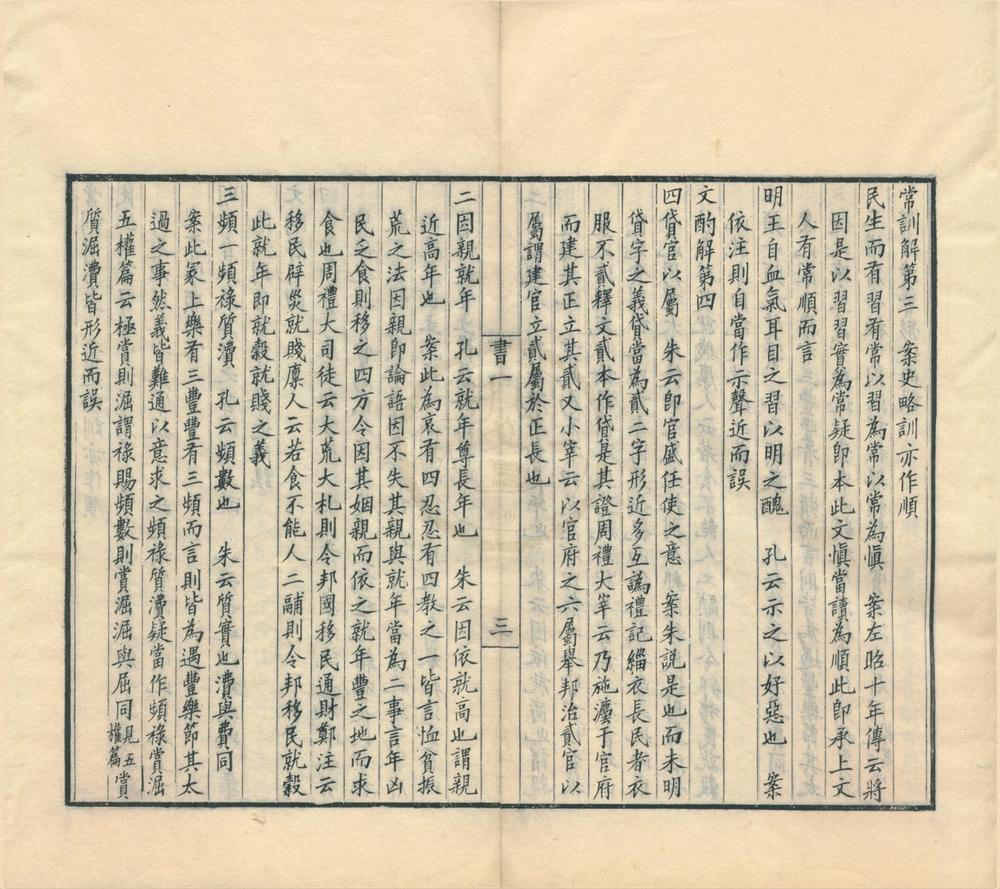 常訓解第三　案史略訓亦作順
民生而有習有常以習爲常以常爲愼　案左昭十年傳云將
因是以習習實爲常疑卽本此文愼當讀爲順此卽承上文
人有常順而言
明王自血氣耳目之習以明之醜　孔云示之以好惡也　案
依注則自當作示聲近而誤
文酌解第四
四貸官以屬　朱云卽官盛任使之意　案朱說是也而未明
貸字之義貸當為貳二字形近多互譌禮記緇衣長民者衣
服不貳釋文貳本作貸是其證周禮大宰云乃施灋于官府
而建其正立其貳又小宰云以官府之六屬舉邦治貳官以
屬謂建官立貳屬於正長也
書一
三
二因親就年　孔云就年尊長年也　朱云因依就高也謂親
近高年也　案此為哀有四忍忍有四教之一皆言恤貧振
荒之法因親卽論語因不失其親與就年當為二事言年凶
民乏食則移之四方令因其姻親而依之就年豐之地而求
食也周禮大司徒云大荒大札則令邦國移民通財鄭注云
移民辟災就賤廩人云若食不能人二鬴則令邦移民就穀
此就年卽就穀就賤之義
三頻一頻祿質瀆　孔云頻數也　朱云質實也瀆與費同
案此冢上樂有三豐豐有三頻而言則皆為遇豐樂節其太
過之事然義皆難通以意求之頻祿質瀆疑當作頻祿賞淈
五權篇云極賞則淈謂祿賜頻數則賞淈淈與屈同見五權篇賞
質淈瀆皆形近而誤